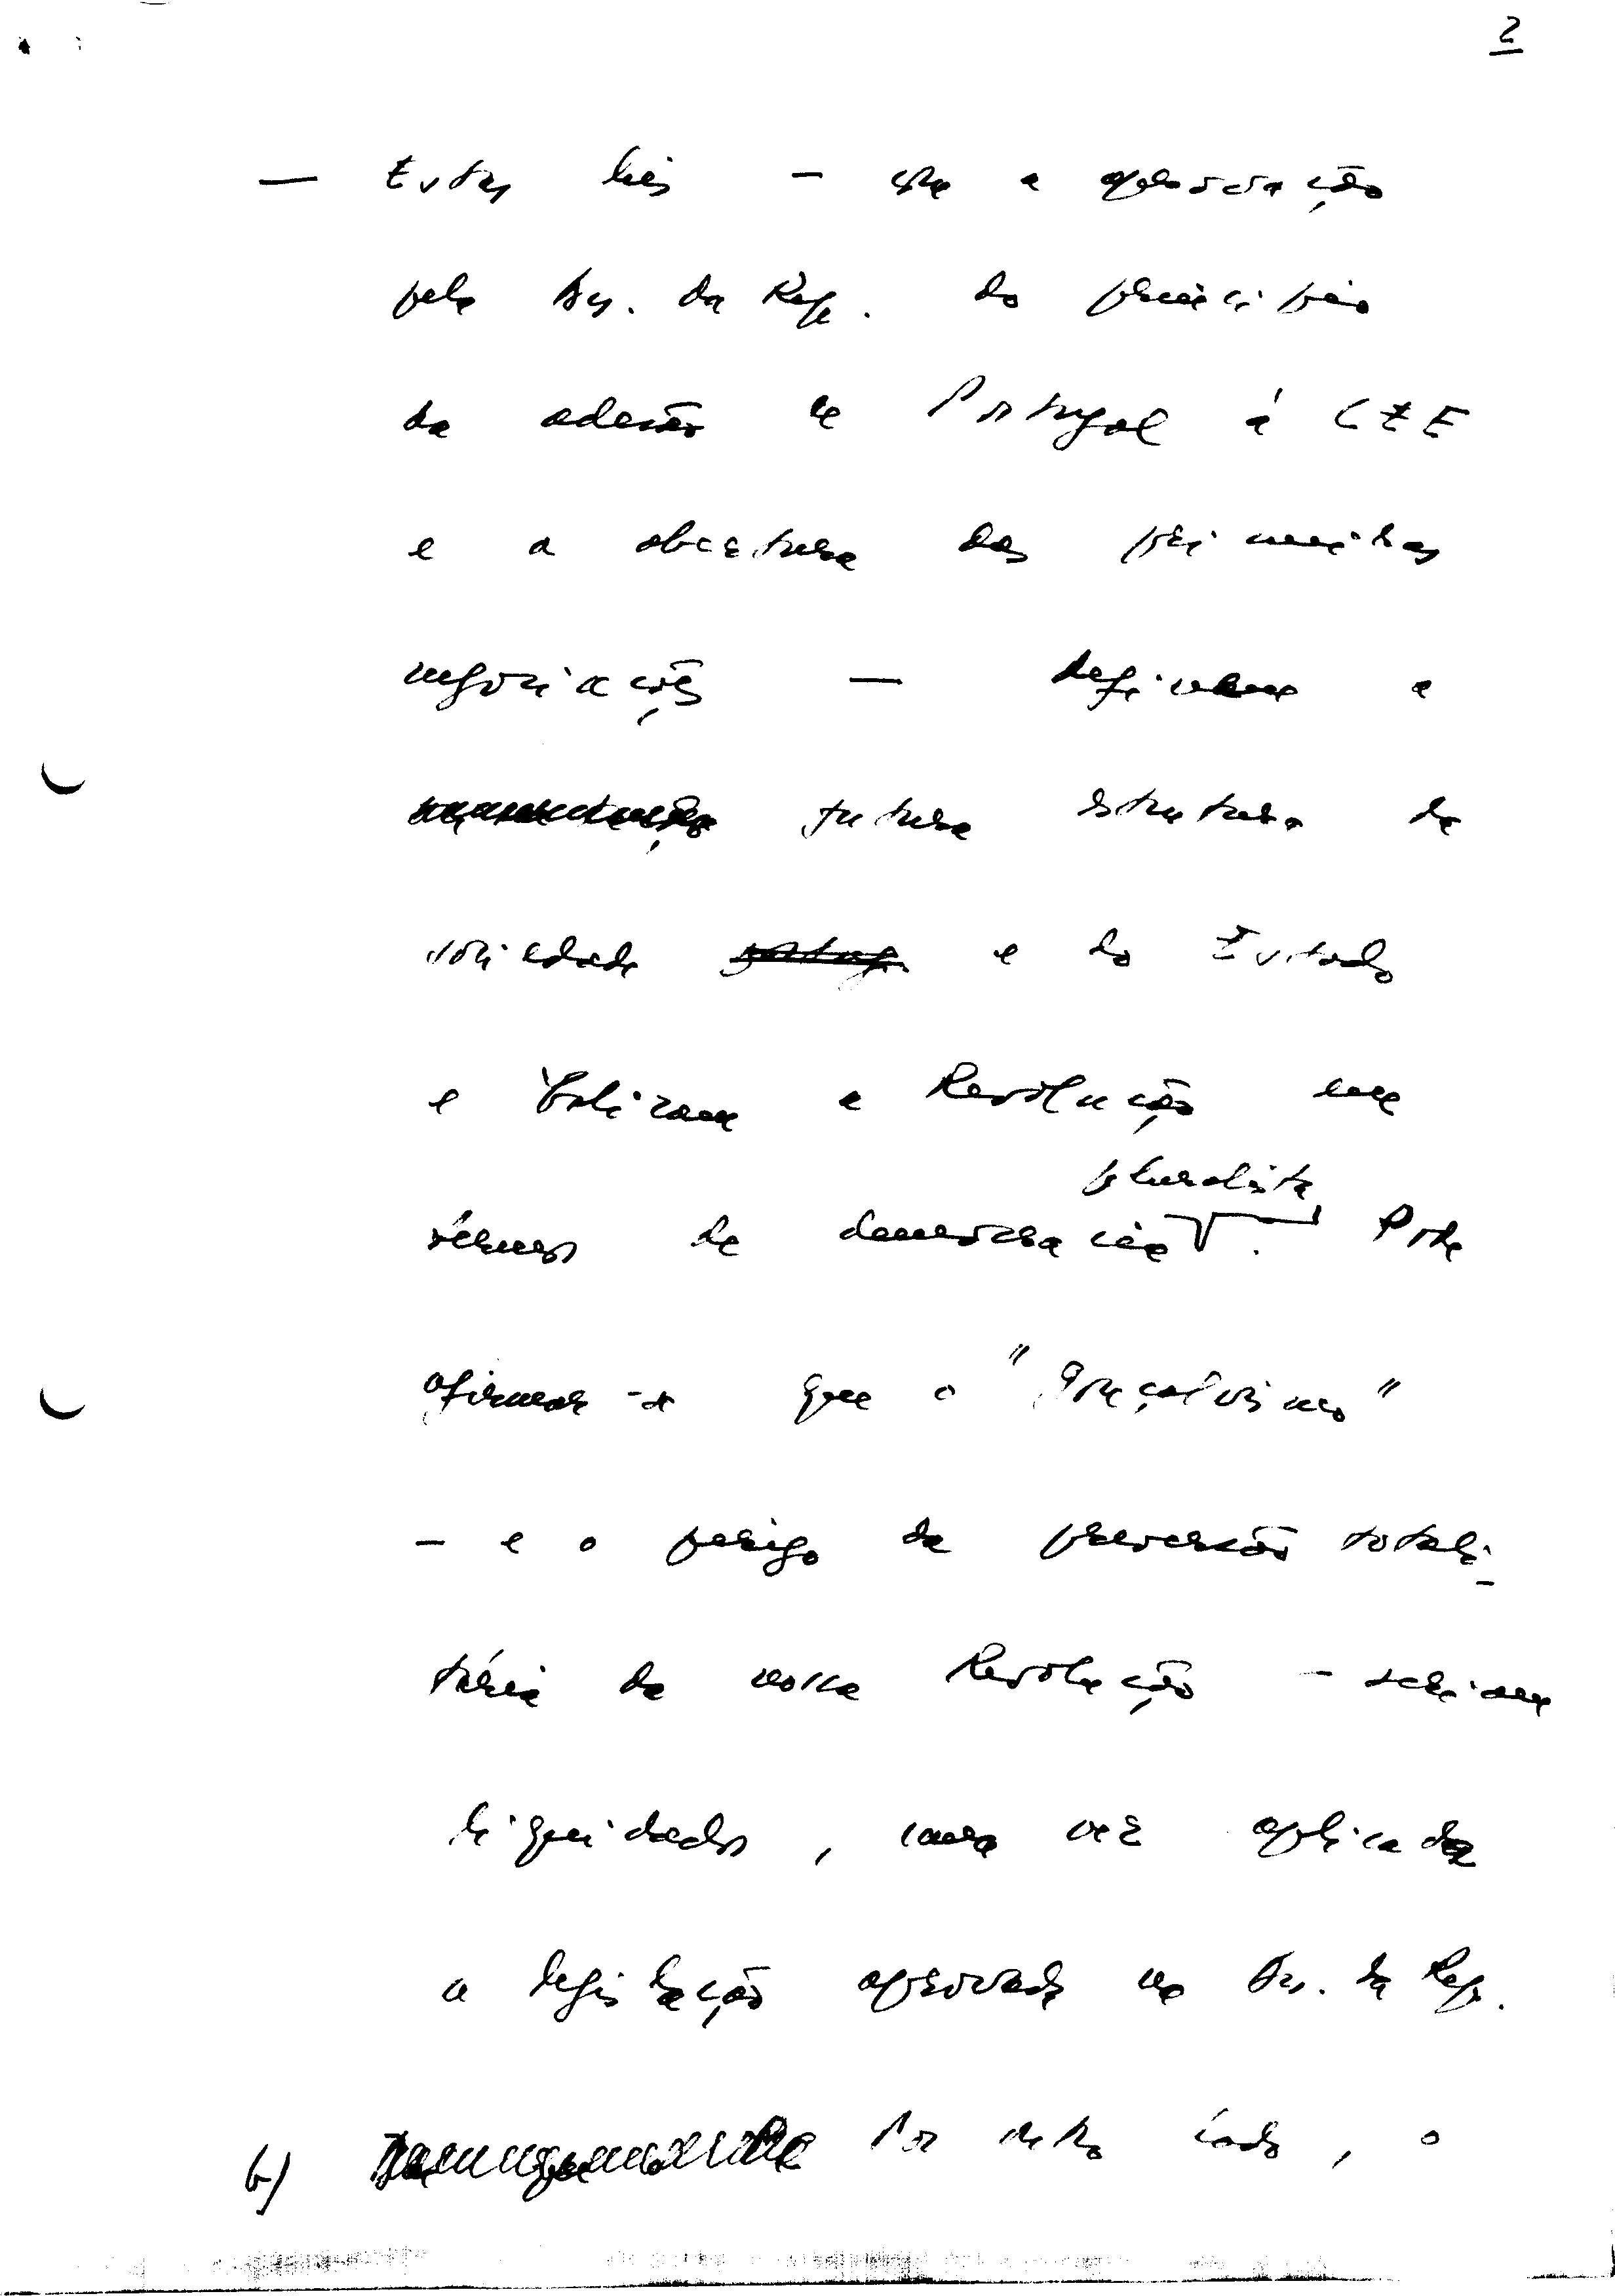 2
— Estas leis – com a aprovação
pela Ass. da Rep. do princípio
da adesão de Portugal à CEE
e a abertura das primeiras
negociações — definem a
futura estrutura da
sociedade e do Estado
e balizam a Revolução em
pluralista
termos de democracia . Pode
afirmar-se que o "Gonçalvismo"
– e o perigo da perversão totali-
tária da nossa Revolução – seriam
liquidados, uma vez aplicada
a legislação aprovada na Ass. da Rep.
b) Por outro lado, o